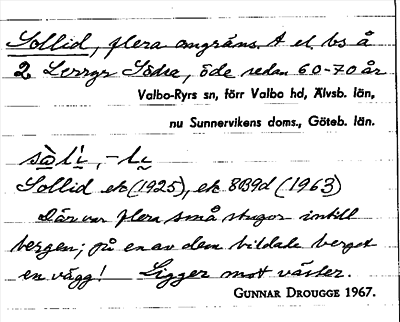 Sollid, flera angräns. A el. bs å
2 Lerrgr Södra, öde sedan 60-70 år
Valbo-Ryrs sn, förr Valbo hd, Älvsb. län,
nu Sunnervikens doms., Göteb. län.
Sollid ek (1925), ek 8B9d (1963)
Där var flera små stugor intill
bergen; på en av dem bildade berget
en vägg! Ligger mot väster.
GUNNAR DROUGGE 1967.